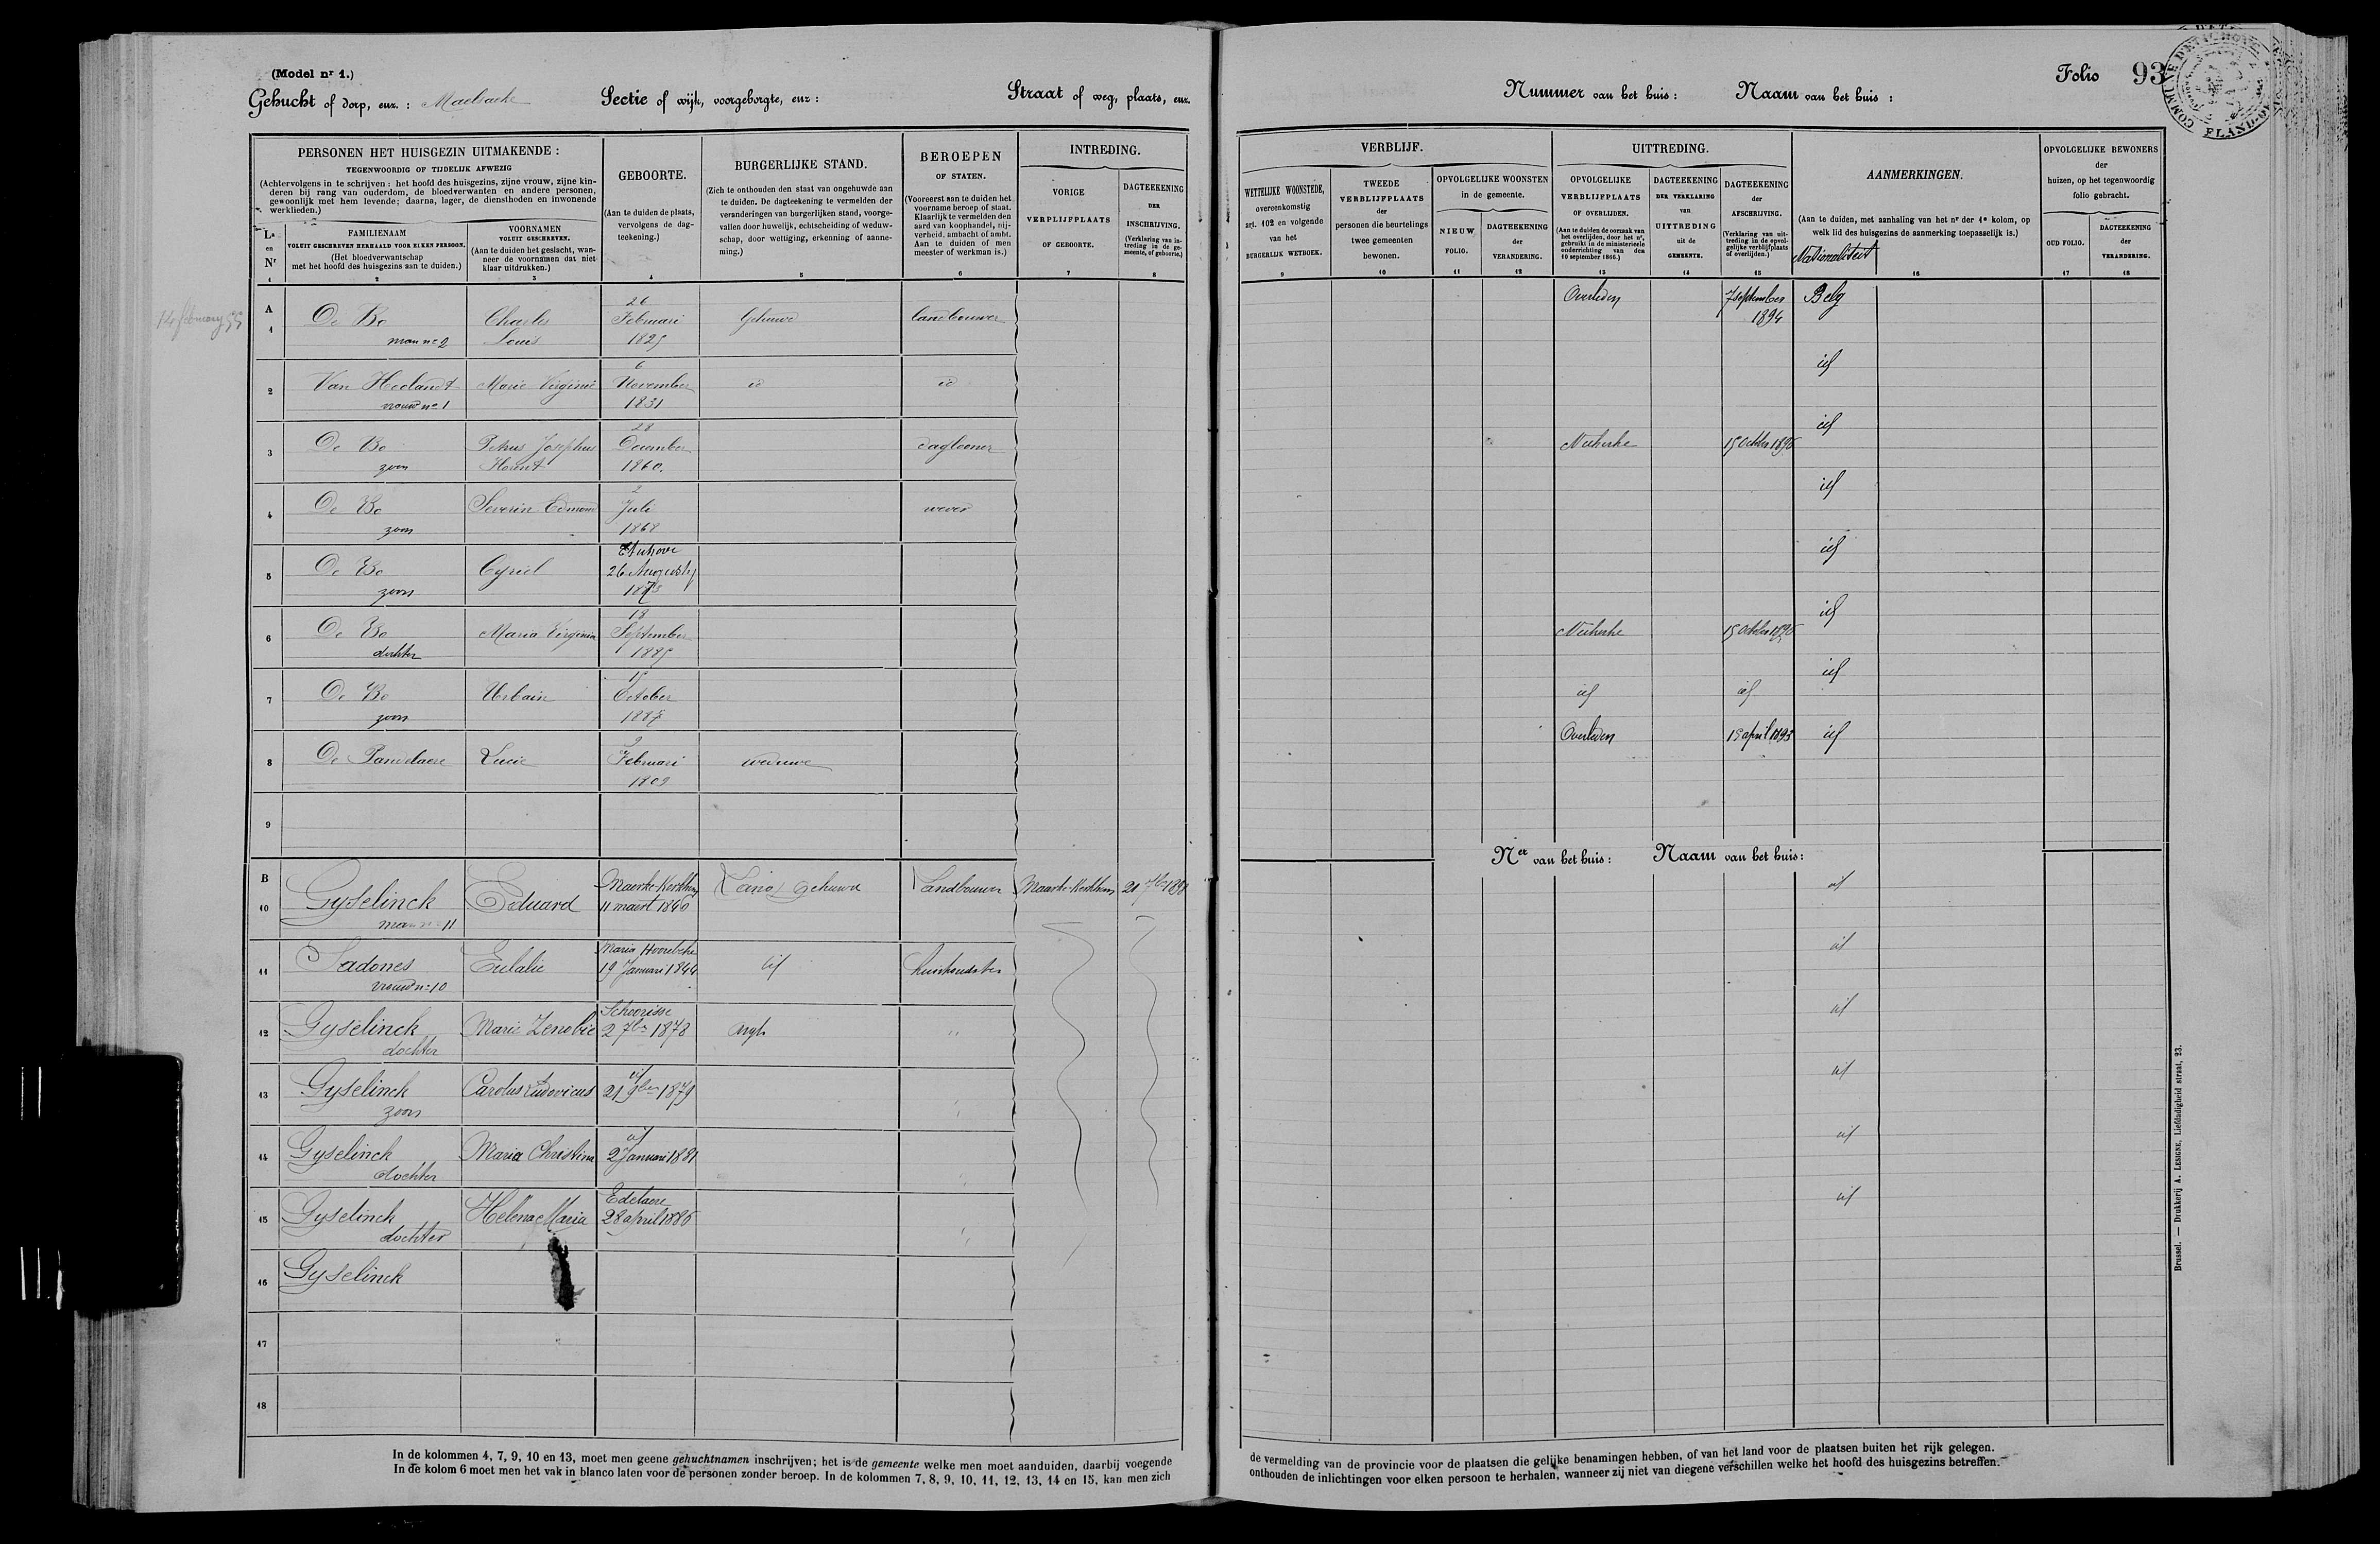 (Model nr 1.)
Gehucht of dorp, enz. : Maelbeeke
Sectie of wijk, voorgeborgte, enz :
Straat of weg, plaats, enz.
PERSONEN HET HUISGEZIN UITMAKENDE :
TEGENWOORDIG OF TIJDELIJK AFWEZIG
(Achtervolgens in te schrijven : het hoofd des huisgezins, zijne vrouw, zijne kin-
deren bij rang van ouderdom, de bloedverwanten en andere personen,
gewoonlijk met hem levende; daarna, lager, de diensthoden en inwonende
werklieden.)
La
en
Nr
1
FAMILIENAAM
VOLUIT GESCHREVEN HERHAALD VOOR ELKEN PERSOON.
(Het bloedverwantschap
met het hoofd des huisgezins aan te duiden.)
2
VOORNAMEN
VOLUIT GESCHREVEN.
(Aan te duiden het geslacht, wan-
neer de voornamen dat niet
klaar uitdrukken.)
3
GEBOORTE.
(Aan te duiden de plaats,
vervolgens de dag-
teekening.)
4
BURGERLIJKE STAND.
(Zich te onthouden den staat van ongehuwde aan
te duiden. De dagteekening te vermelden der
veranderingen van burgerlijken stand, voorge-
vallen door huwelijk, echtscheiding of weduw-
schap, door wettiging, erkenning of aanne-
ming.)
5
BEROEPEN
OF STATEN.
(Vooreerst aan te duiden het
voorname beroep of staat.
Klaarlijk te vermelden den
aard van koophandel, nij-
verheid, ambacht of ambt.
Aan te duiden of men
meester of werkman is.)
6
INTREDING.
VORIGE
VERPLIJFPLAATS
OF GEBOORTE.
7
DAGTEEKENING
DER
INSCHRIJVING.
(Verklaring van in-
treding in de ge-
meente, of geboorte.)
8
A
1
De Bo
man no 2
Charles
Louis
26
Februari
1825
Gehuwd
landbouwer
2
Van Heelandt
vrouw no 1
Marie Virginie
6
November
1831
id
id
3
De Bo
zoon
Petrus Josephus
28
December
1860.
daglooner
4
De Bo
zoon
Severin Edmond
2
Juli
1868
wever
5
De Bo
zoon
Cyriel
Etichove
26 Augusty
1873
6
De Bo
dochter
Maria Virginia
18
September
1885
7
De Bo
zoon
Urbain
October
1887
8
De Pandelaere
Lucie
2
Februari
1809
weduwe
9
B
10
Gyselinck
man no 11
Eduard
Maerke-Kerkhem
11 maert 1840
gehuwd
Landbouwer
Maarke-Kerkhem
21 7ber 1891
11
Sadones
vrouw no 10
Eulalie
Maria Hoorebeke
19 Januari 1844
id
huishoudster
12
Gyselinck
dochter
Marie Zenobie
Schoorisse
2 7ber 1878
13
Gyselinck
zoon
Carolus Ludovicus
id
21 9ber 1879
14
Gyselinck
dochter
Maria Christina
id
2 Januari 1881
15
Gyselinck
dochter
Helena Maria
Edelaere
28 april 1886
16
Gyselinck
17
18
In de kolommen 4, 7, 9, 10 en 13, moet men geene gehuchtnamen inschrijven; het is de gemeente welke men moet aanduiden, daarbij voegende
In de kolom 6 moet men het vak in blanco laten voor de personen zonder beroep. In de kolommen 7, 8, 9, 10, 11, 12, 13, 14 en 15, kan men zich
Nummer van het huis :
Naam van het huis :
Folio 93
VERBLIJF.
WETTELIJKE WOONSTEDE,
overeenkomstig
art. 102 en volgende
van het
BURGERLIJK WETBOEK.
9
TWEEDE
VERBLIJFPLAATS
der
personen die beurtelings
twee gemeenten
bewonen.
10
OPVOLGELIJKE WOONSTEN
in de gemeente.
NIEUW
FOLIO.
11
DAGTEEKENING
der
VERANDERING.
12
UITTREDING.
OPVOLGELIJKE
VERBLIJFPLAATS
OF OVERLIJDEN.
(Aan te duiden de oorzaak van
het overlijden, door het nr,
gebruikt in de ministerieele
onderrichting van den
10 september 1866.)
13
DAGTEEKENING
DER VERKLARING
van
UITTREDING
uit de
GEMEENTE.
14
DAGTEEKENING
der
AFSCHRIJVING.
(Verklaring van uit-
treding in de opvol-
gelijke verblijfplaats
of overlijden.)
15
AANMERKINGEN.
(Aan te duiden, met aanhaling van het nr der 1e kolom, op
welk lid des huisgezins de aanmerking toepasselijk is.)
Nationaliteit
16
OPVOLGELIJKE BEWONERS
der
huizen, op het tegenwoordig
folio gebracht.
OUD FOLIO.
17
DAGTEEKENING
der
VERANDERING.
18
Overleden
7 september
1894
Belg
id
Nukerke
15 October 1896
id
id
id
Nukerke
15 October 1896
id
id
id
id
Overleden
15 april 1893
id
Ner van het huis :
Naam van het huis :
id
id
id
id
id
id
de vermelding van de provincie voor de plaatsen die gelijke benamingen hebben, of van het land voor de plaatsen buiten het rijk gelegen.
onthouden de inlichtingen voor elken persoon te herhalen, wanneer zij niet van diegene verschillen welke het hoofd des huisgezins betreffen.
Brussel. — Drukkerij A. LESIGNE, Liefdadigheid straat, 23.